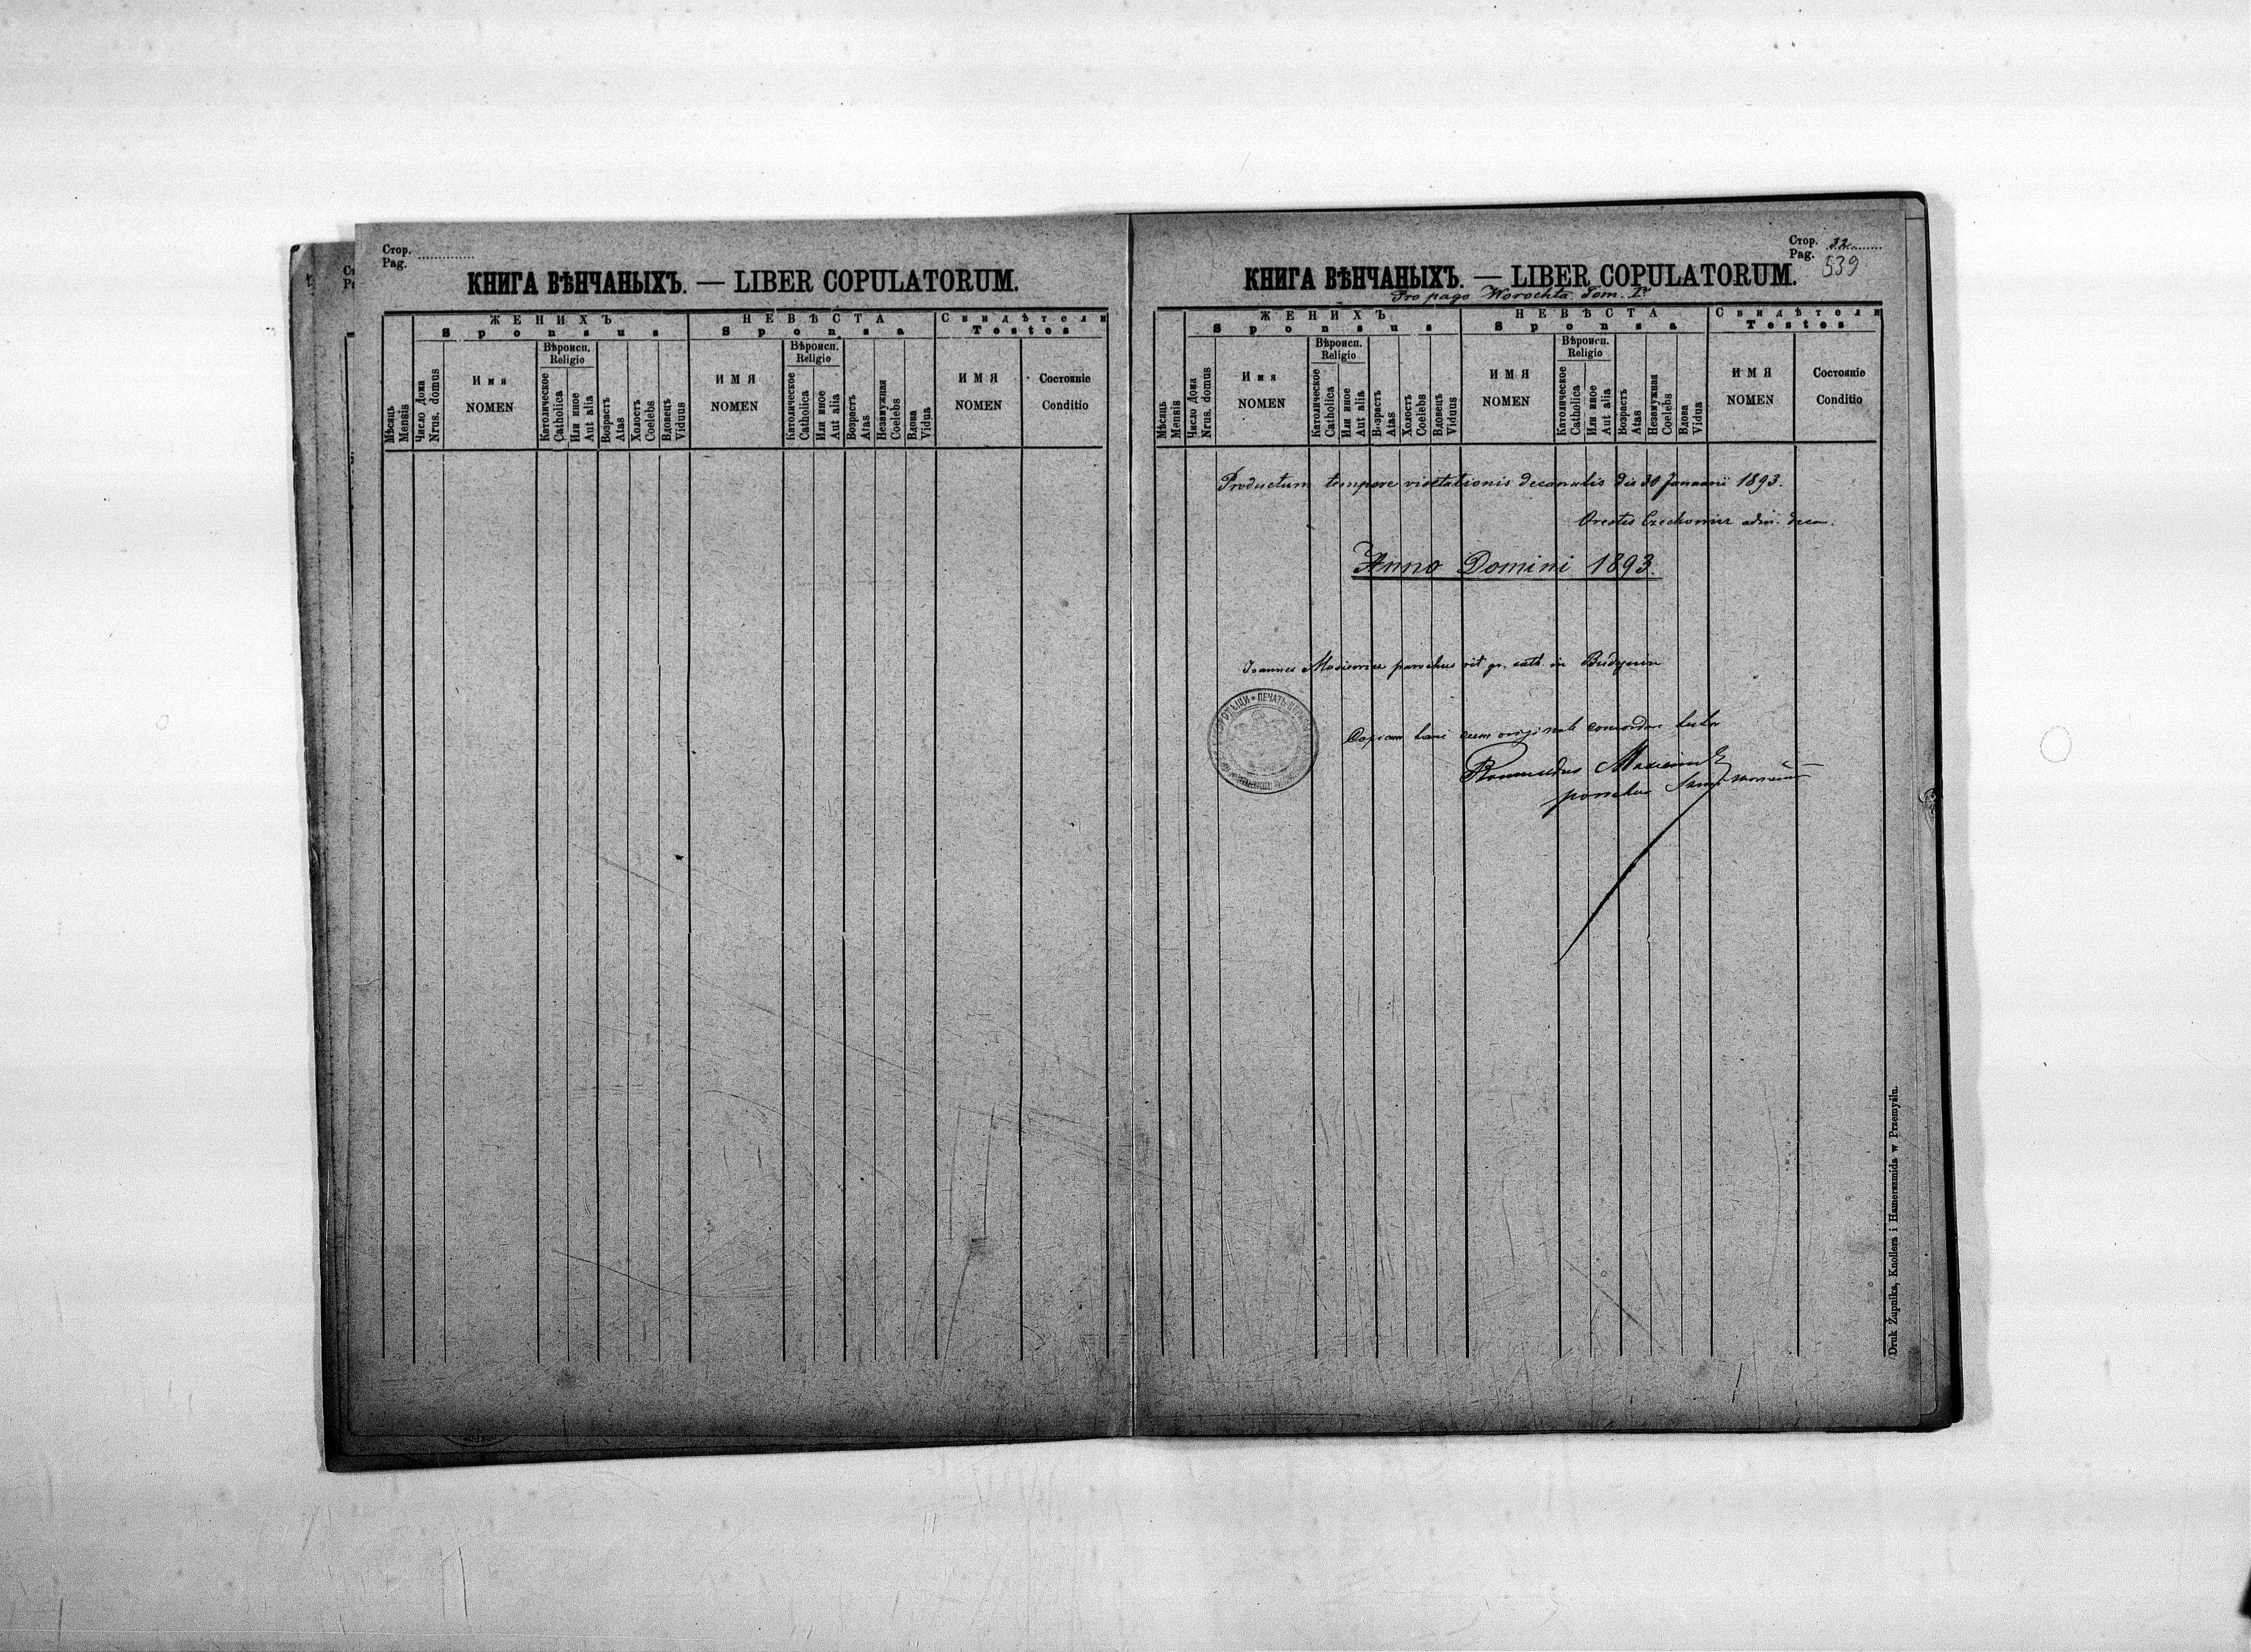 Стор.
Pag.
КНИГА ВѢНЧАНЫХЪ. — LIBER COPULATORUM.
ЖЕНИХЪ
Sponsus
НЕВѢСТА
Sponsa
Свидѣтели
Testes
Мѣсяць
Mensis
Число Дома
Nrus. domus
Имя
NOMEN
Вѣроисп.
Religio
Католическое
Catholica
Или иное
Aut alia
Возрастъ
Atas
Холостъ
Coelebs
Вдовецъ
Viduus
ИМЯ
NOMEN
Вѣроисп.
Religio
Католическое
Catholica
Или иное
Aut alia
Возрастъ
Atas
Незамужная
Coelebs
Вдова
Vidua
ИМЯ
NOMEN
Состояніе
Conditio
Стор. 32
Pag.
539
КНИГА ВѢНЧАНЫХЪ. — LIBER COPULATORUM.
Pro pago Worochta Tom. I.
ЖЕНИХЪ
Sponsus
НЕВѢСТА
Sponsa
Свидѣтели
Testes
Мѣсяць
Mensis
Число Дома
Nrus. domus
Имя
NOMEN
Вѣроисп.
Religio
Католическое
Catholica
Или иное
Aut alia
Возрастъ
Atas
Холостъ
Coelebs
Вдовецъ
Viduus
ИМЯ
NOMEN
Вѣроисп.
Religio
Католическое
Catholica
Или иное
Aut alia
Возрастъ
Atas
Незамужная
Coelebs
Вдова
Vidua
ИМЯ
NOMEN
Состояніе
Conditio
Productum tempore visitationis decanalis die 30 Januarii 1893.
Orestes Czechowicz adm. deca.
Anno Domini 1893.
Joannes parochus rit. gr. cath. in Budynin
ПЕЧАТЬ
Copiam hanc cum originali concordare
parochus
Druk Żupnika, Knollera i Hamerszmida w Przemyślu.